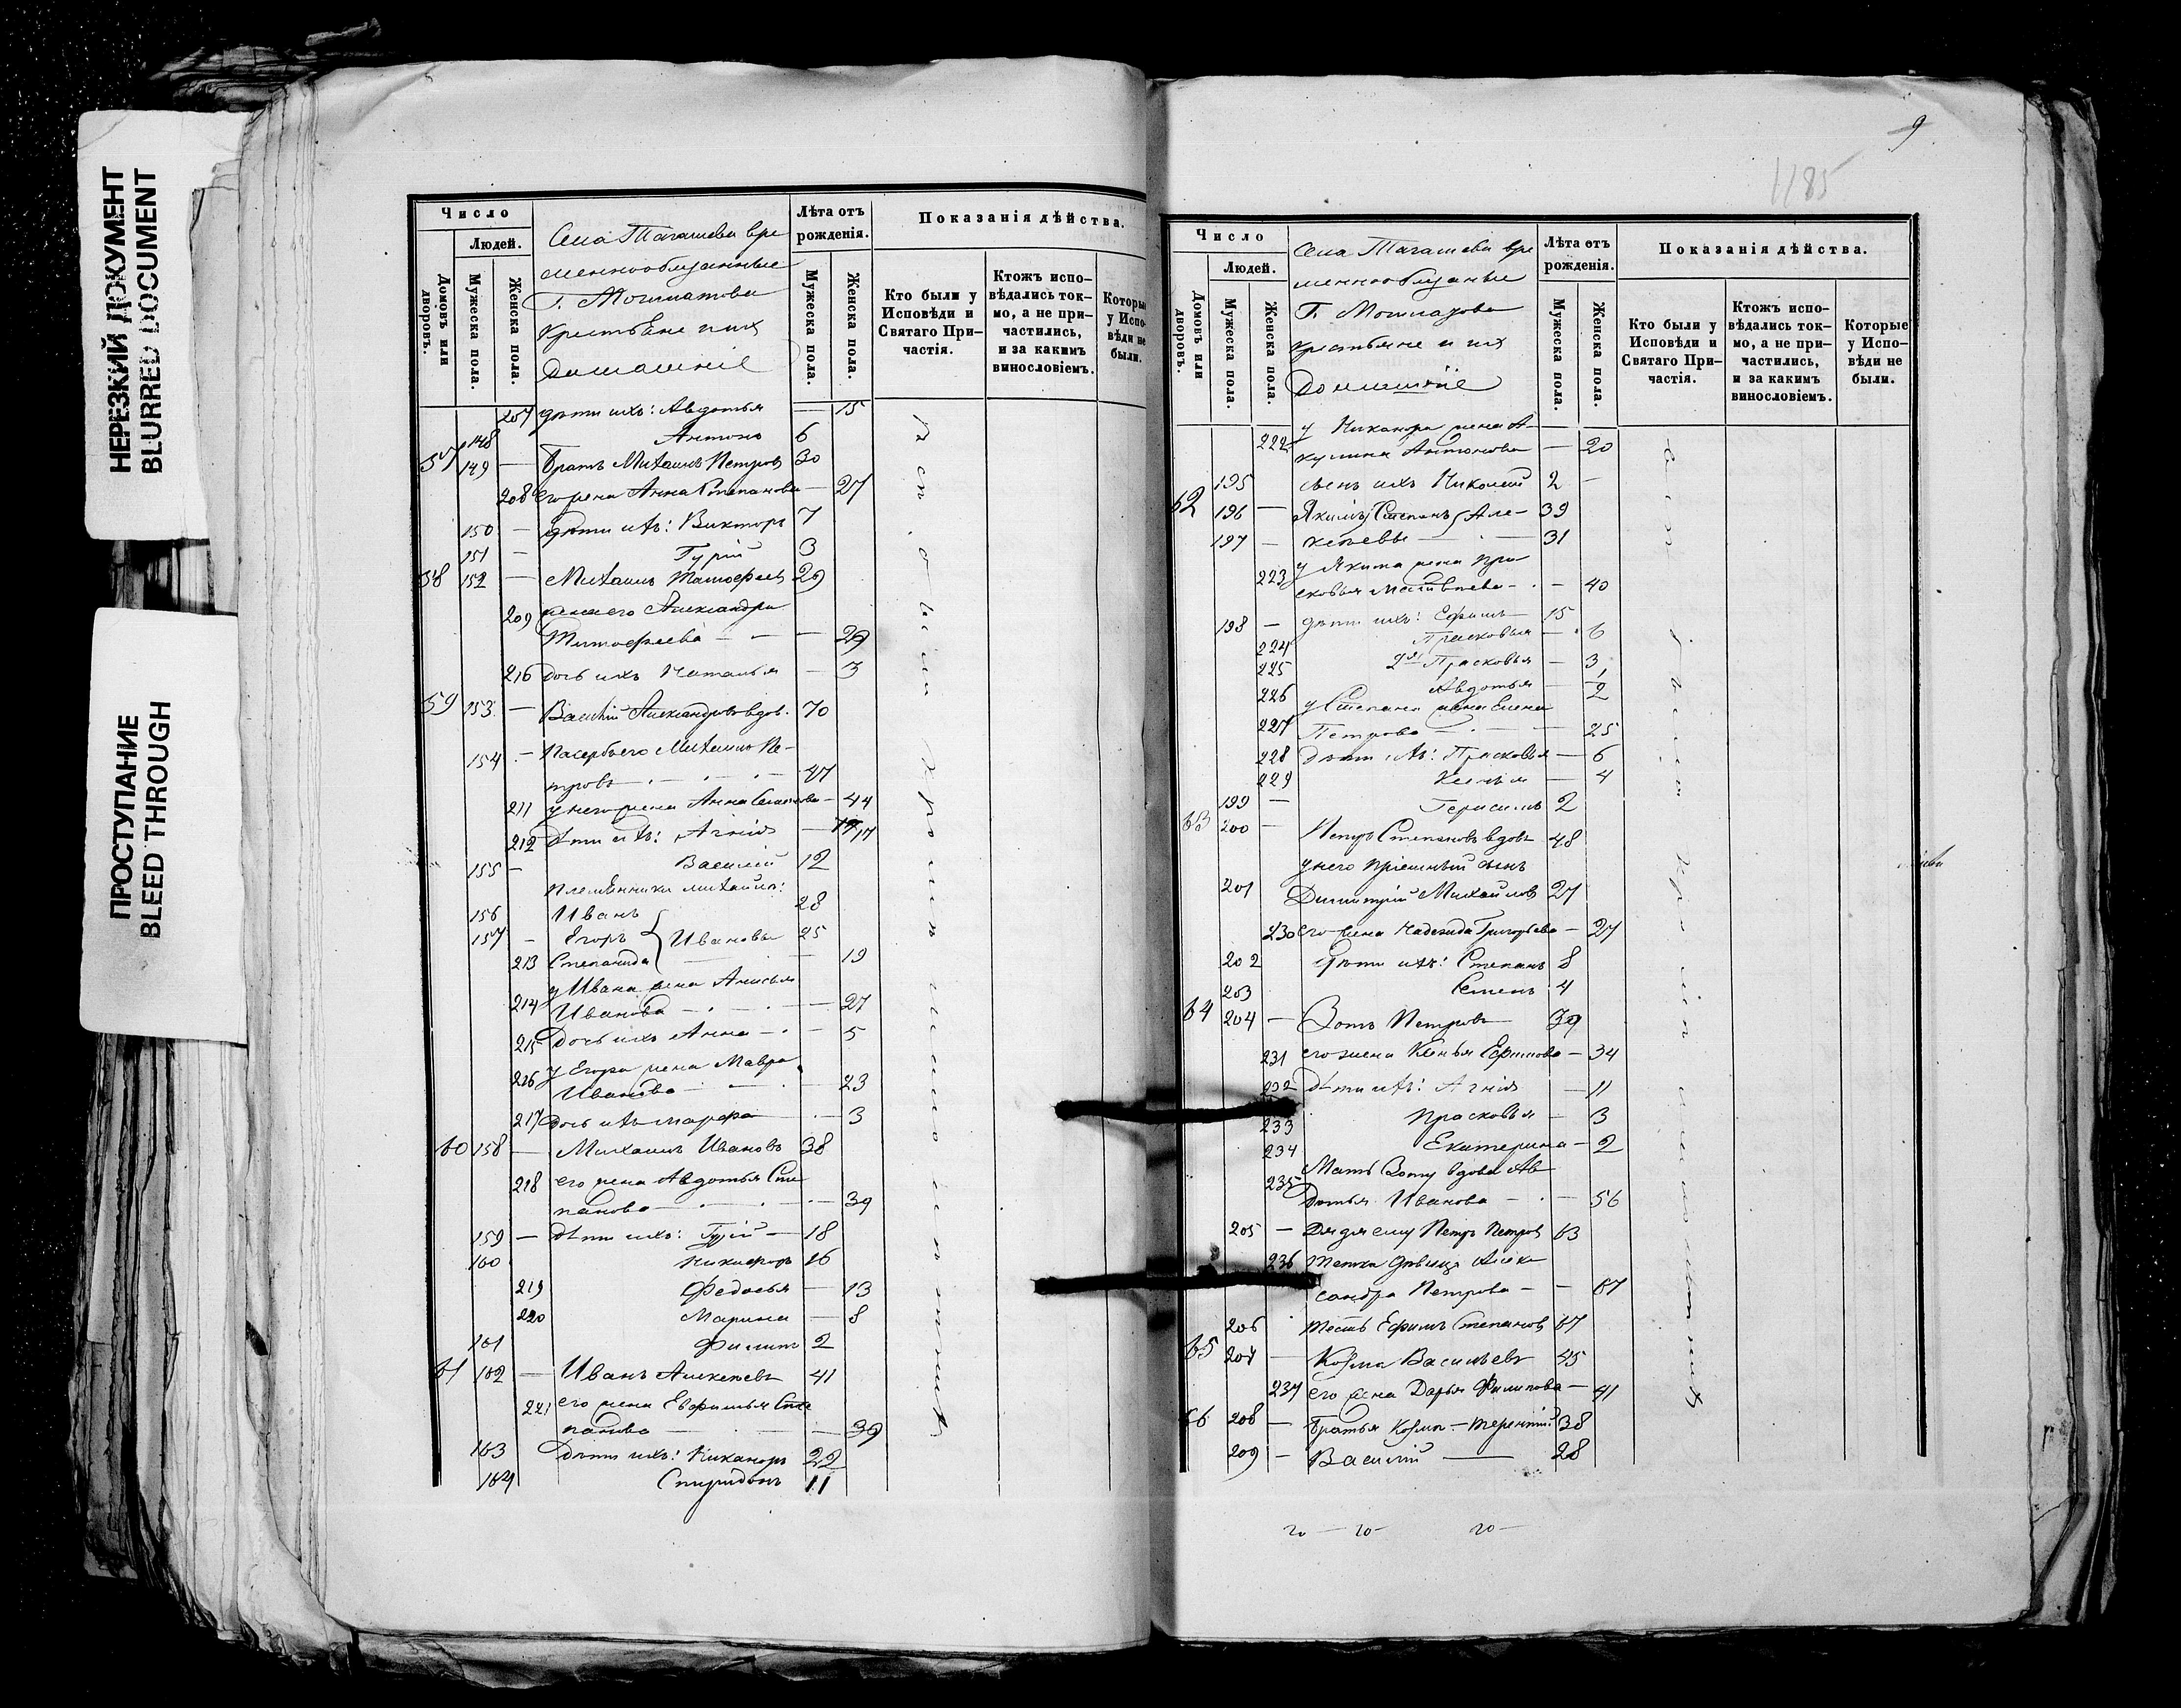 НЕРЕЗКИЙ ДОКУМЕНТ
BLURRED DOCUMENT
ПРОСТУПАНИЕ
BLEED THROUGH
Число
Людей.
Домовъ или дворовъ.
Мужеска пола.
Женска пола.
Села Тагашева вре
меннообязанные
г.
крестьяне и их
домашніе
Лѣта отъ рожденія.
Мужеска пола.
Женска пола.
Показанія дѣйства.
Кто были у Исповѣди и Святаго При-частія.
Ктожъ испо-вѣдались ток-мо, а не при-частились, и за какимъ винословіемъ.
Которые у Испо-вѣди не были.
207 дѣти ихъ: Авдотья — 15
148 Антонъ 6
57 149 — Братъ Михаилъ Петровъ 30
208 его жена Анна Степанова — 27
150 — дѣти ихъ: Викторъ 7
151 — Гурій 3
58 152 — Михаилъ Тимофеевъ 29
209 жена его Александра
Тимофеева — — — 29
210 дочь ихъ Наталья — 3
59 153 — Василій Александровъ вдов. 70
154 — Пасербъ его Михаилъ Пе-
тровъ — 47
211 у него жена Анна — 44
212 дѣти ихъ: Агнія — 17
155 — Василій 12
племянники Михаила:
156 Иванъ 28
157 — Егоръ } Ивановы 25
213 Степанида — 19
у Ивана жена Анисья
214 Иванова — 27
215 Дочь ихъ Анна — 5
216 у Егора жена Мавра
Иванова — 23
217 дочь ихъ Марфа — 3
60 158 — Михаилъ Ивановъ 38
218 его жена Авдотья Сте
панова — 39
159 — дѣти ихъ: Гурій — 18
160 Никифоръ 16
219 Федосья — 13
220 Марина — 8
161 Филиппъ 2
61 162 — Иванъ Алексѣевъ 41
221 его жена Евфимья Сте
панова — 39
163 Дѣти ихъ: Никаноръ 22
164 Спиридонъ 11
9
1185
Число
Людей.
Домовъ или дворовъ.
Мужеска пола.
Женска пола.
Села Тагашева вре
меннообязаные
Г.
крестьяне и их
домашніе
Лѣта отъ рожденія.
Мужеска пола.
Женска пола.
Показанія дѣйства.
Кто были у Исповѣди и Святаго При-частія.
Ктожъ испо-вѣдались ток-мо, а не при-частились, и за какимъ винословіемъ.
Которые у Испо-вѣди не были.
у Никанора жена А-
222 кулина Антонова — 20
195 сынъ ихъ Николай 2 —
62 196 — Якимъ, Степанъ } Але- 39
197 — ксѣевы — 31
у Якима жена Пра-
223 сковья Матвѣева — 40
198 — дѣти ихъ: Ефимъ 15
224 Прасковья — 6
225 2я Прасковья — 3
226 Авдотья — 2
у Степана жена Елена
227 Петрова — 25
228 Дѣти ихъ: Прасковья — 6
229 Ксенья — 4
199 — Герасимъ 2
63 200 — Петръ Степановъ вдовъ 48
у него пріемный сынъ
201 Димитрій Михайловъ 27
230 его жена Надежда Григорьева — 27
202 дѣти ихъ: Степанъ 8
203 Семенъ 4
64 204 — Зотъ Петровъ 39
231 его жена Ксенья Ефимова — 34
232 дѣти ихъ: Агнія — 11
233 Прасковья — 3
234 Екатерина — 2
235 Мать Зоту вдова Ав
дотья Иванова — 56
205 — Дядя ему Петръ Петровъ 63
236 Тетка дѣвица Алек
сандра Петрова — 67
206 тесть Ефимъ Степановъ 67
65 207 — Козма Васильевъ 45
237 его жена Дарья Филипова — 41
66 208 — Братья Козмы — Терентій 38
209 — Василій — 28
20 — 20 — 20 —